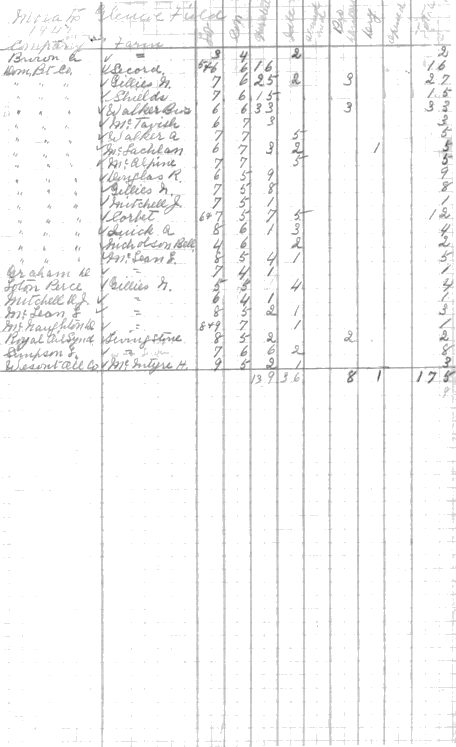 Mosa To Glencoe Field
1947
Company Farm Lot Con
Brown C ✓ " 3 4 2 2
Dom. Pet. Co. ✓ Secord 5+6 6 16 16
" " " ✓ Gillies N. 7 6 25 2 3 27
" " " ✓ Shields 7 6 15 15
" " " ✓ Walker Bros 6 6 33 3 33
" " " ✓ McTavish 6 7 3 3
" " " ✓ Walker A 7 7 5 5
" " " ✓ McLachlan 6 7 3 2 1 5
" " " ✓ McAlpine 7 7 5 5
" " " ✓ Douglas R. 6 5 9 9
" " " ✓ Gillies N. 7 5 8 8
" " " ✓ Mitchell J. 7 5 1 1
" " " ✓ Corbet 6+7 5 7 5 12
" " " ✓ Quick A 8 6 1 3 4
" " " ✓ Nicholson Bell 4 6 2 2
" " " ✓ McLean J. 8 5 4 1 5
Graham D ✓ " 7 4 1 1
✓ Gillies N. 5 5 4 4
Mitchell R.J. ✓ " 6 4 1 1
McLean J ✓ " 8 5 2 1 3
McNaughton D ✓ " 8+9 7 1 1
Royal Oil Synd ✓ Livingstone 8 5 2 2 2
Simpson J. ✓ " 7 6 6 2 8
Oil Co ✓ McIntyre H. 9 5 2 1 3
139 36 8 1 175